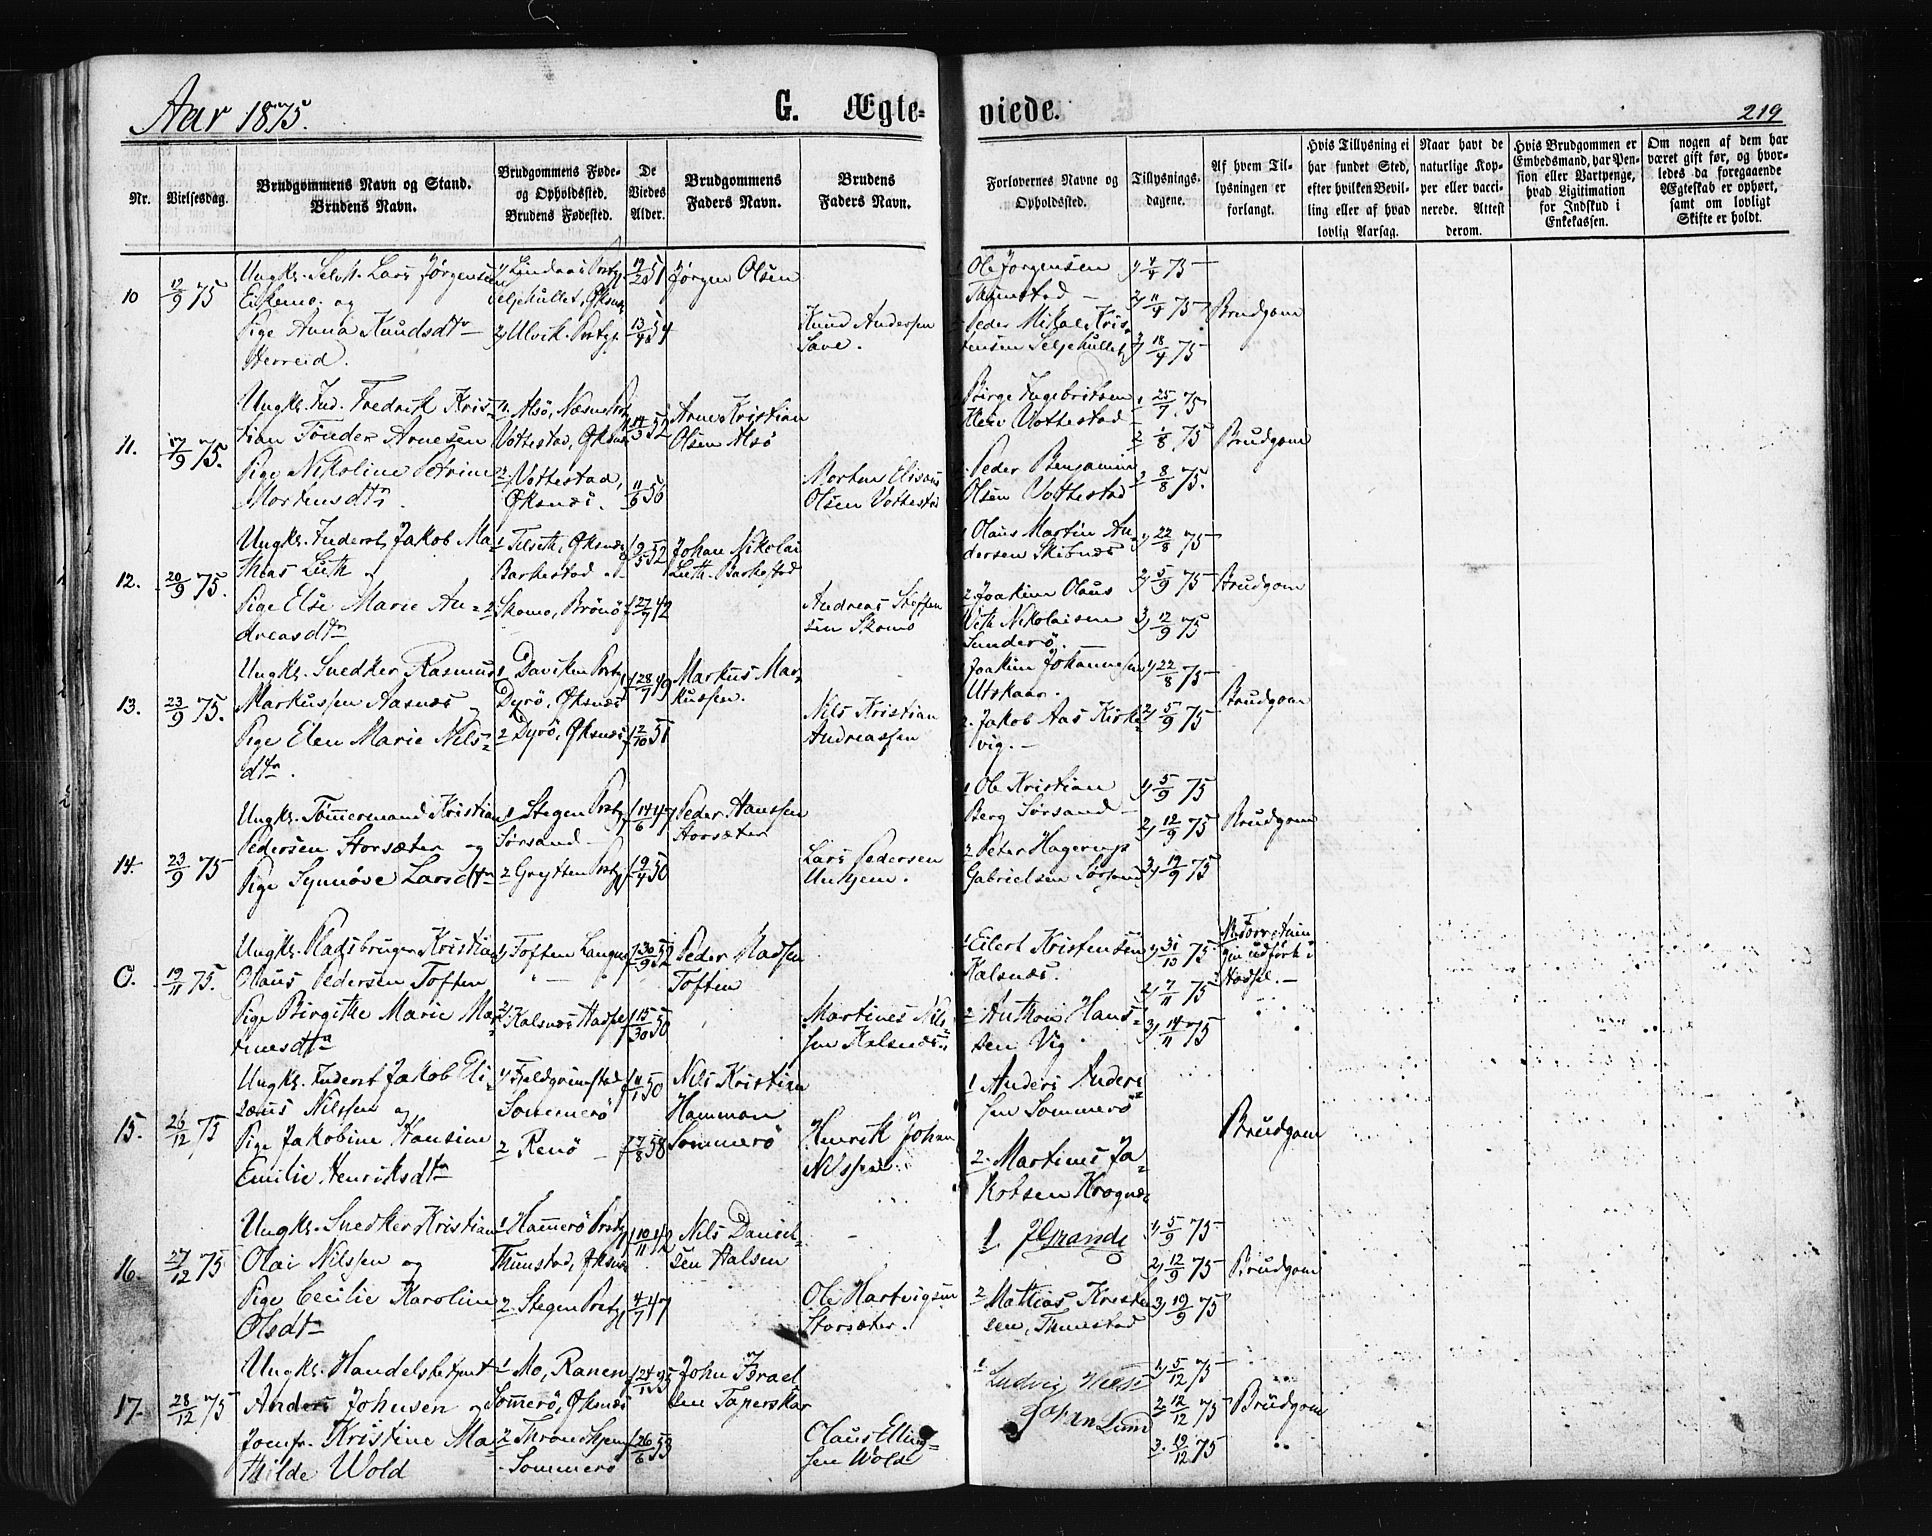 Aar 1875.
G. Ægteviede.
219
Nr.
Vielsesdag.
Brudgommens Navn og Stand.
Brudens Navn.
Brudgommens Føde-
og Opholdssted.
Brudens Fødested.
De
Viedes
Alder.
Brudgommens
Faders Navn.
Brudens
Faders Navn.
Forlovernes Navne og
Opholdssted.
Tillysnings-
dagene.
Af hvem Til-
lysningen er
forlangt.
Hvis Tillysning ei
har fundet Sted,
efter hvilken Bevil-
ling eller af hvad
lovlig Aarsag.
Naar havt de
naturlige Kop-
per eller vacci-
nerede. Attest
derom.
Hvis Brudgommen er
Embedsmand, har Pen-
sion eller Vartpenge,
hvad Ligitimation
for Indskud i
Enkekassen.
Om nogen af dem har
været gift før, og hvor-
ledes da foregaaende
Ægteskab er ophørt,
samt om lovligt
Skifte er holdt.
10
12/9 75
Ungk. Selvk. Lars Jørgensen
og
Pige Anna Knudsdtr
Herreid.
1) Lindaas Prstgj
Seljehullet, Øksnæs
2) Ulvik Prstgj.
19/2 51
13/9 54
Jørgen Olsen
Knud Andersen
Save.
Ole Jørgensen
Tunstad
Peder Mikal Kris-
tensen Seljehullet
1) 4/4 75
2) 11/4 75
3) 18/4 75
Brudgom
11.
17/9 75.
Ungk. Ind. Fredrik Kris-
tian Tønder Arnesen
Pige Nikoline Petrine
Mortensdtr.
1. Alsø, Næsne Prst
Vottestad, Øksnæs
2. Vottestad,
Øksnæs.
14/3 52
11/9 50
Arne Kristian
Olsen Alsø
Morten Elisæus
Olsen Vottestad
Birge Ingebritsen
Vottestad
2. Peder Benjamin
Olsen Vottestad
1 25/7 75
2 1/8 75
3 8/8 75.
Brudgom
12.
20/9 75.
Ungk. Inderst Jakob Ma-
thias Luth
Pige Else Marie An-
dreasdtr
1 Tilseth, Øksnæs
Barkestad
2. Skomo, Brønø
9/5 52
27/9 42
Johan Nikolai
Luth Barkestad
Andreas Steffen
sen Skomo
1 Olaus Martin An-
dersen Skibnæs
2 Joakim Olaus
Veth Nikolaisen
Sanderø.
1) 22/8 75
2) 5/9 75
3) 12/9 75
Brudgom
13.
23/9 75.
Ungk. Snedker Rasmus
Markussen Aasnæs
Pige Elen Marie Nils-
dtr.
1 Daviken Prstgj
Dyrø, Øksnæs
2 Dyrø, Øksnæs
28/7 49
12/10 51
Markus Mar-
kussen.
Nils Kristian
Andreassen
1 Joakim Johannesen
Utskaar.
2. Jakob Aas Kirke-
vig.
1) 22/8 75
2) 5/9 75
Brudgom
14.
23/9 75
Ungk. Tømmermand Kristian
Pedersen Storsæter og
Pige Synnøve Larsdtr
1 Stegen Prstgj
Sørsand
2 Grytten Prstgj
14/6 47
9/4 50
Peder Hansen
Storsæter
Lars Pedersen
Unhjem.
1 Ole Kristian
Berg Sørsand
2 Peter Hagerup
Gabrielsen Sørsand
1) 5/9 75
2) 12/9 75
3) 19/9 75
Brudgom
O.
19/11 75.
Ungk. Pladsbruger Kristian
Olaus Pedersen Toften
Pige Birgitte Marie Mar-
tinesdtr
1) Toften Langnæs
2) Kalsnæs Hadsel
30/9 52
15/30 50
Peder Madsen
Toften
Martines Nils-
sen Kalsnæs.
1 Eilert Kristensen
Kalsnæs.
2 Anthon Hans-
sen Vig.
1) 31/10 75
2) 7/11 75
3) 14/11 75
Forretnin
gen udført i
Hadsel.
15.
26/12 75
Ungk. Inderst Jakob Eli-
zæus Nilssen og
Pige Jakobine Hansine
Emilie Henriksdtr
1) Fjeldgrimstad
Sommerø
2 Renø
11/1 50
7/8 58
Nils Kristian
Hammon
Sommerø
Henrik Johan
Nilssen
1 Anders Anders
sen Sommerø
2. Martines Ja-
kobsen Krognæs
Brudgom
16.
27/12 75
Ungk. Snedker Kristian
Olai Nilssen og
Pige Cecilie Karoline
Olsdtr
1 Hammerø Prstgj
Thunstad, Øksnæs
2 Stegen Prstgj
10/11 42
4/7 47
Nils Daniel-
sen Halsen
Ole Hartvigsen
Storsæter.
1 J Grande
2 Mathias Kristen
sen, Thunstad
1) 5/9 75
2) 12/9 75
3) 19/9 75
Brudgom
17.
28/12 75
Ungk. Handelsbetjent
Anders Johnsen og
Jomfr. Kristine Ma-
thilde Wold
1 Mo, Ranen
Sommerø, Øksnæs
2 Throndhjem
Sommerø
26/6 53
John Israel
sen Taperskar
Claus Elling-
sen Wold
1 Ludvig
Johan Lund
1) 5/12 75
2 12/12 75
3. 19/12 75
Brudgom